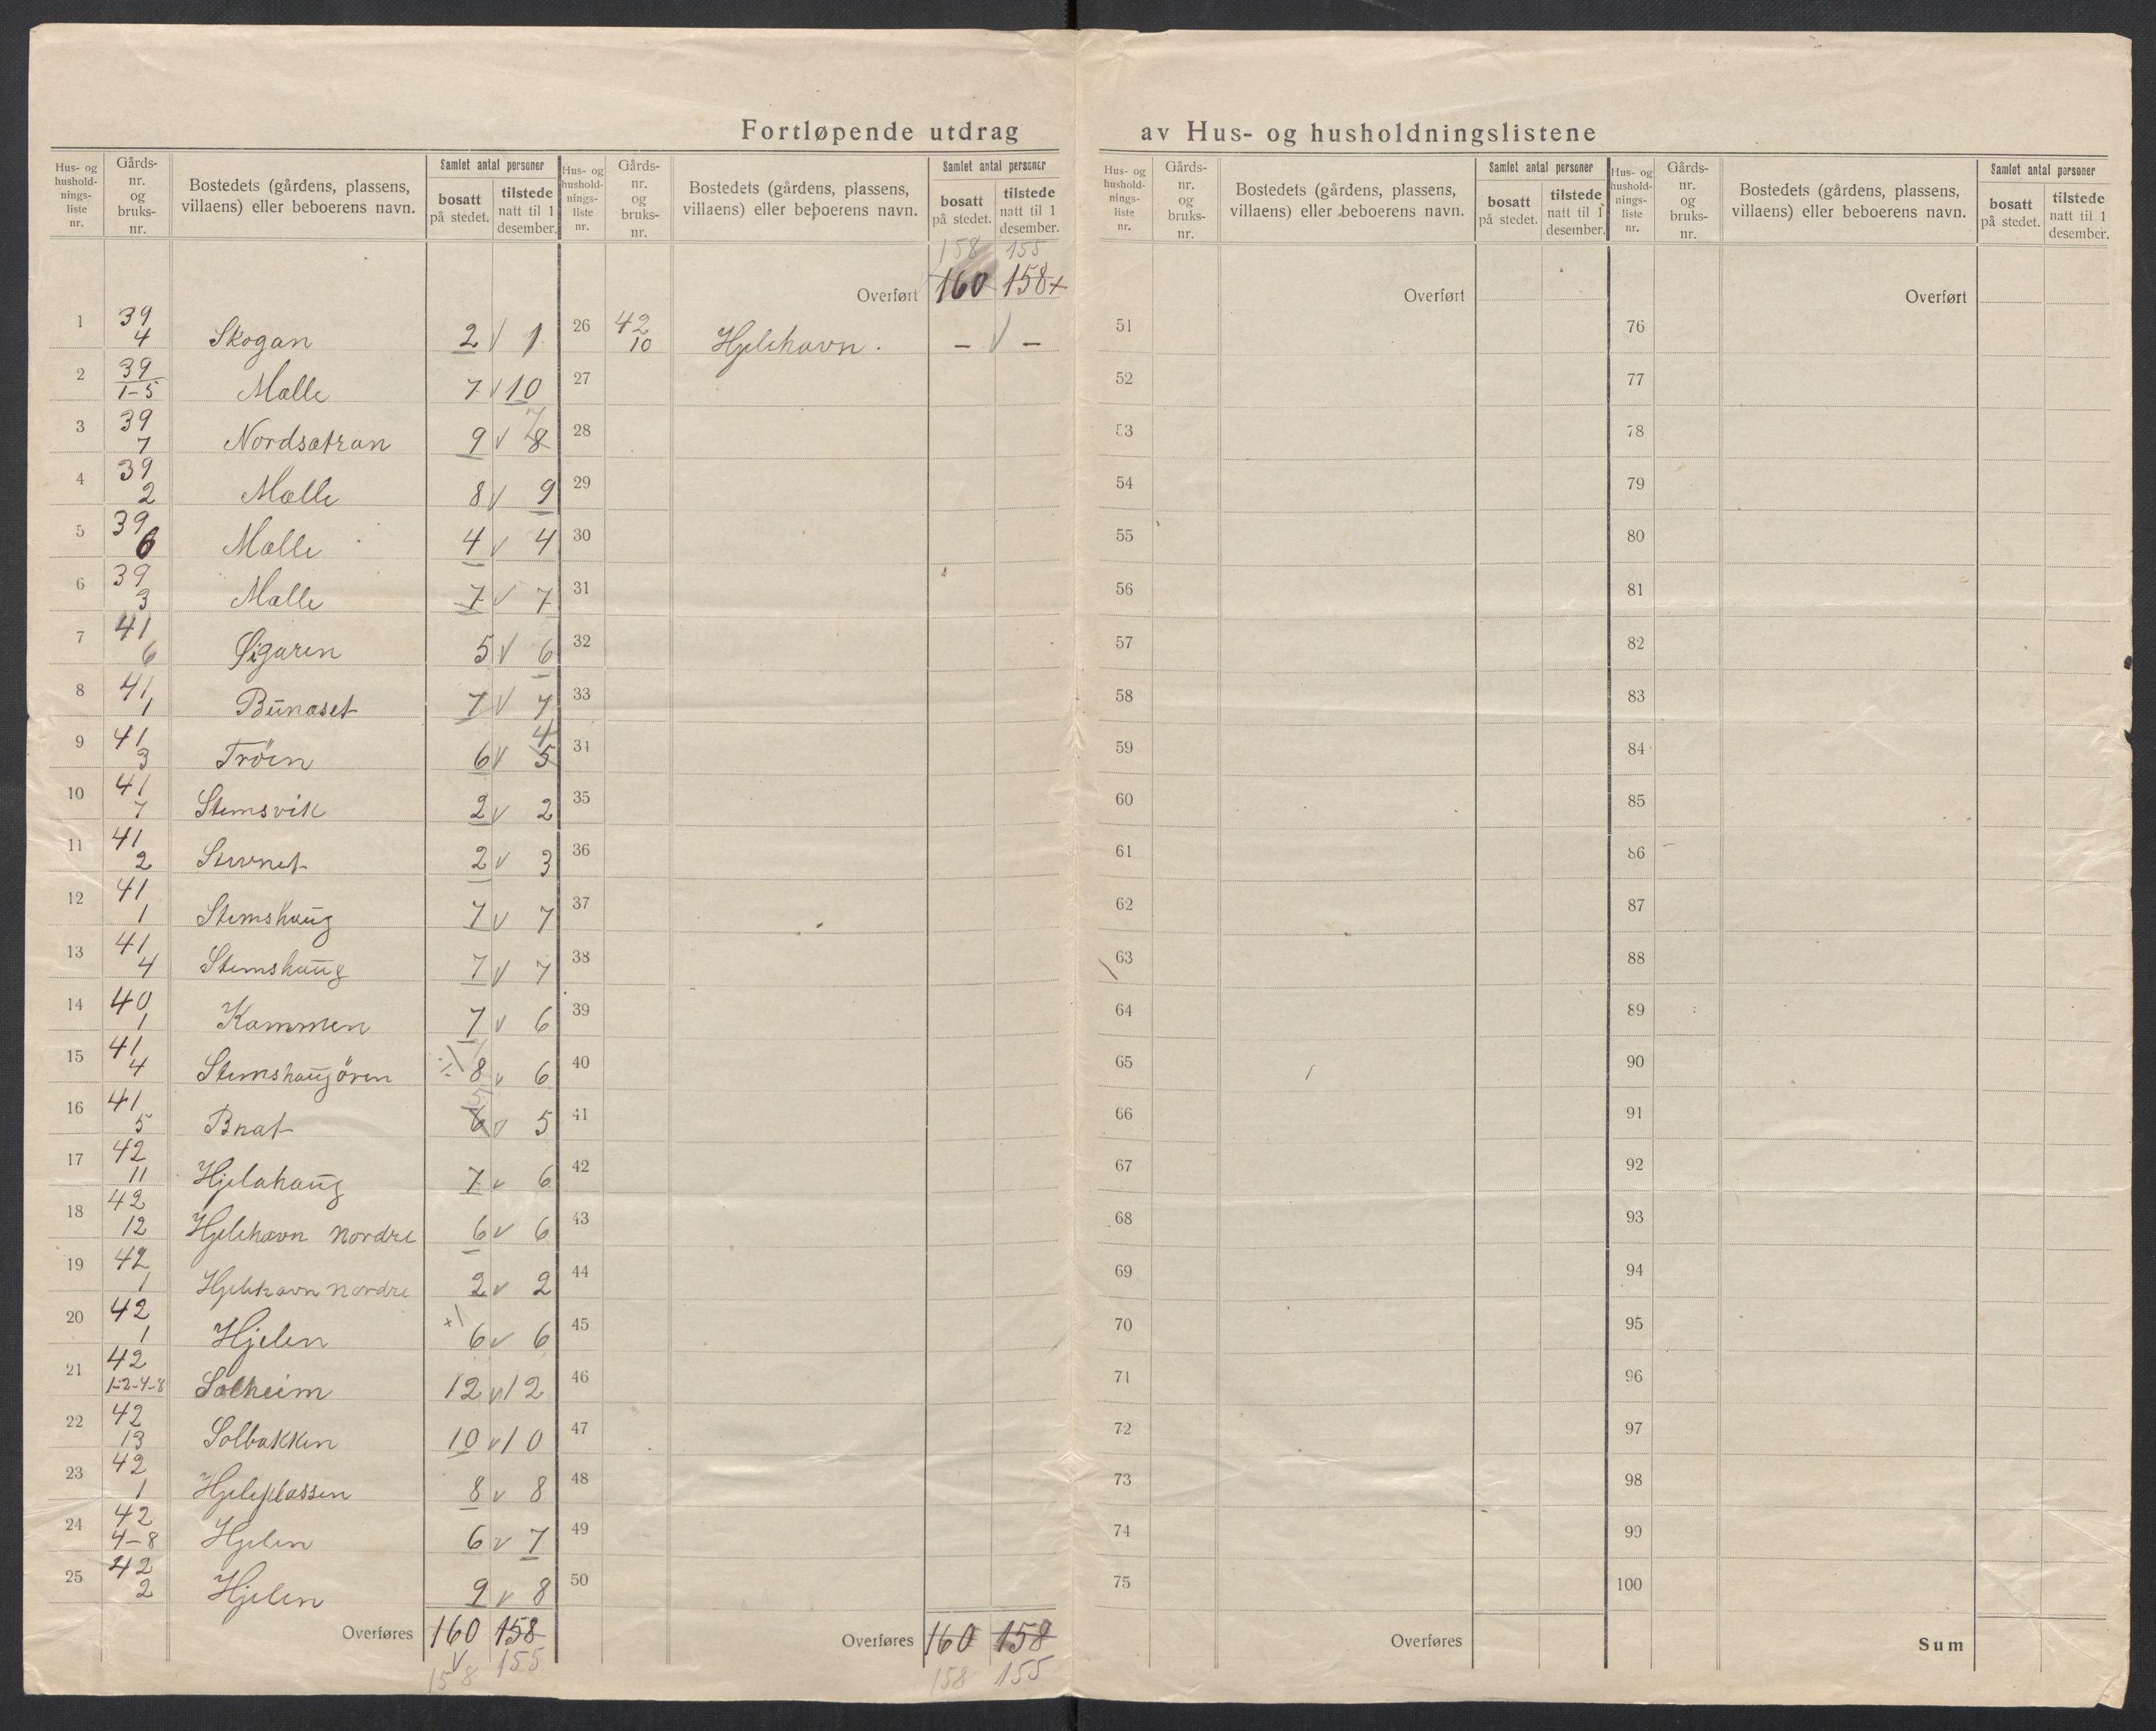 Fortløpende utdrag av Hus- og husholdningslistene
Hus- og husholdningsliste nr. Gårds-nr. og bruks-nr. Bostedets (gårdens, plassens, villaens) eller beboerens navn. Samlet antal personer bosatt på stedet. tilstede natt til 1 desember.
1 39 4 Skogan 2 √ 1
2 39 1-5 Mælle 7 √ 10
3 39 7 Nordsætran 9 √ 8 7
4 39 2 Mælle 8 √ 9
5 39 6 Mælle 4 √ 4
6 39 3 Mælle 7 √ 7
7 41 6 Øigaren 5 √ 6
8 41 1 Bunæset 7 √ 7
9 41 3 Tröen 6 √ 5 4
10 41 7 Stemsvik 2 √ 2
11 41 2 2 √ 3
12 41 1 Stemshaug 7 √ 7
13 41 4 Stemshaug 7 √ 7
14 40 1 Kammen 7 √ 6
15 41 4 Stemshaugören 8 √ 6
16 41 5 6 5 √ 5
17 42 11 Hjelahaug 7 √ 6
18 42 12 Hjelehavn Nordre 6 √ 6
19 42 1 Hjelehavn Nordre 2 √ 2
20 42 1 Hjelen 6 √ 6
21 42 1-2-4-8 Solheim 12 √ 12
22 42 13 Solbakken 10 √ 10
23 42 1 Hjeleplassen 8 √ 8
24 42 4-8 Hjelen 6 √ 7
25 42 2 Hjelen 9 √ 8
Overføres 160 158
√
158 155
Hus- og husholdningsliste nr. Gårds-nr. og bruks-nr. Bostedets (gårdens, plassens, villaens) eller beboerens navn. Samlet antal personer bosatt på stedet. tilstede natt til 1 desember.
158 155
Overført 160 158+
26 42 10 Hjelehavn. – √ –
27
28
29
30
31
32
33
34
35
36
37
38
39
40
41
42
43
44
45
46
47
48
49
50
Overføres 160 158
158 155
Hus- og husholdningsliste nr. Gårds-nr. og bruks-nr. Bostedets (gårdens, plassens, villaens) eller beboerens navn. Samlet antal personer bosatt på stedet. tilstede natt til 1 desember.
Overført
51
52
53
54
55
56
57
58
59
60
61
62
63
64
65
66
67
68
69
70
71
72
73
74
75
Overføres
Hus- og husholdningsliste nr. Gårds-nr. og bruks-nr. Bostedets (gårdens, plassens, villaens) eller beboerens navn. Samlet antal personer bosatt på stedet. tilstede natt til 1 desember.
Overført
76
77
78
79
80
81
82
83
84
85
86
87
88
89
90
91
92
93
94
95
96
97
98
99
100
Sum